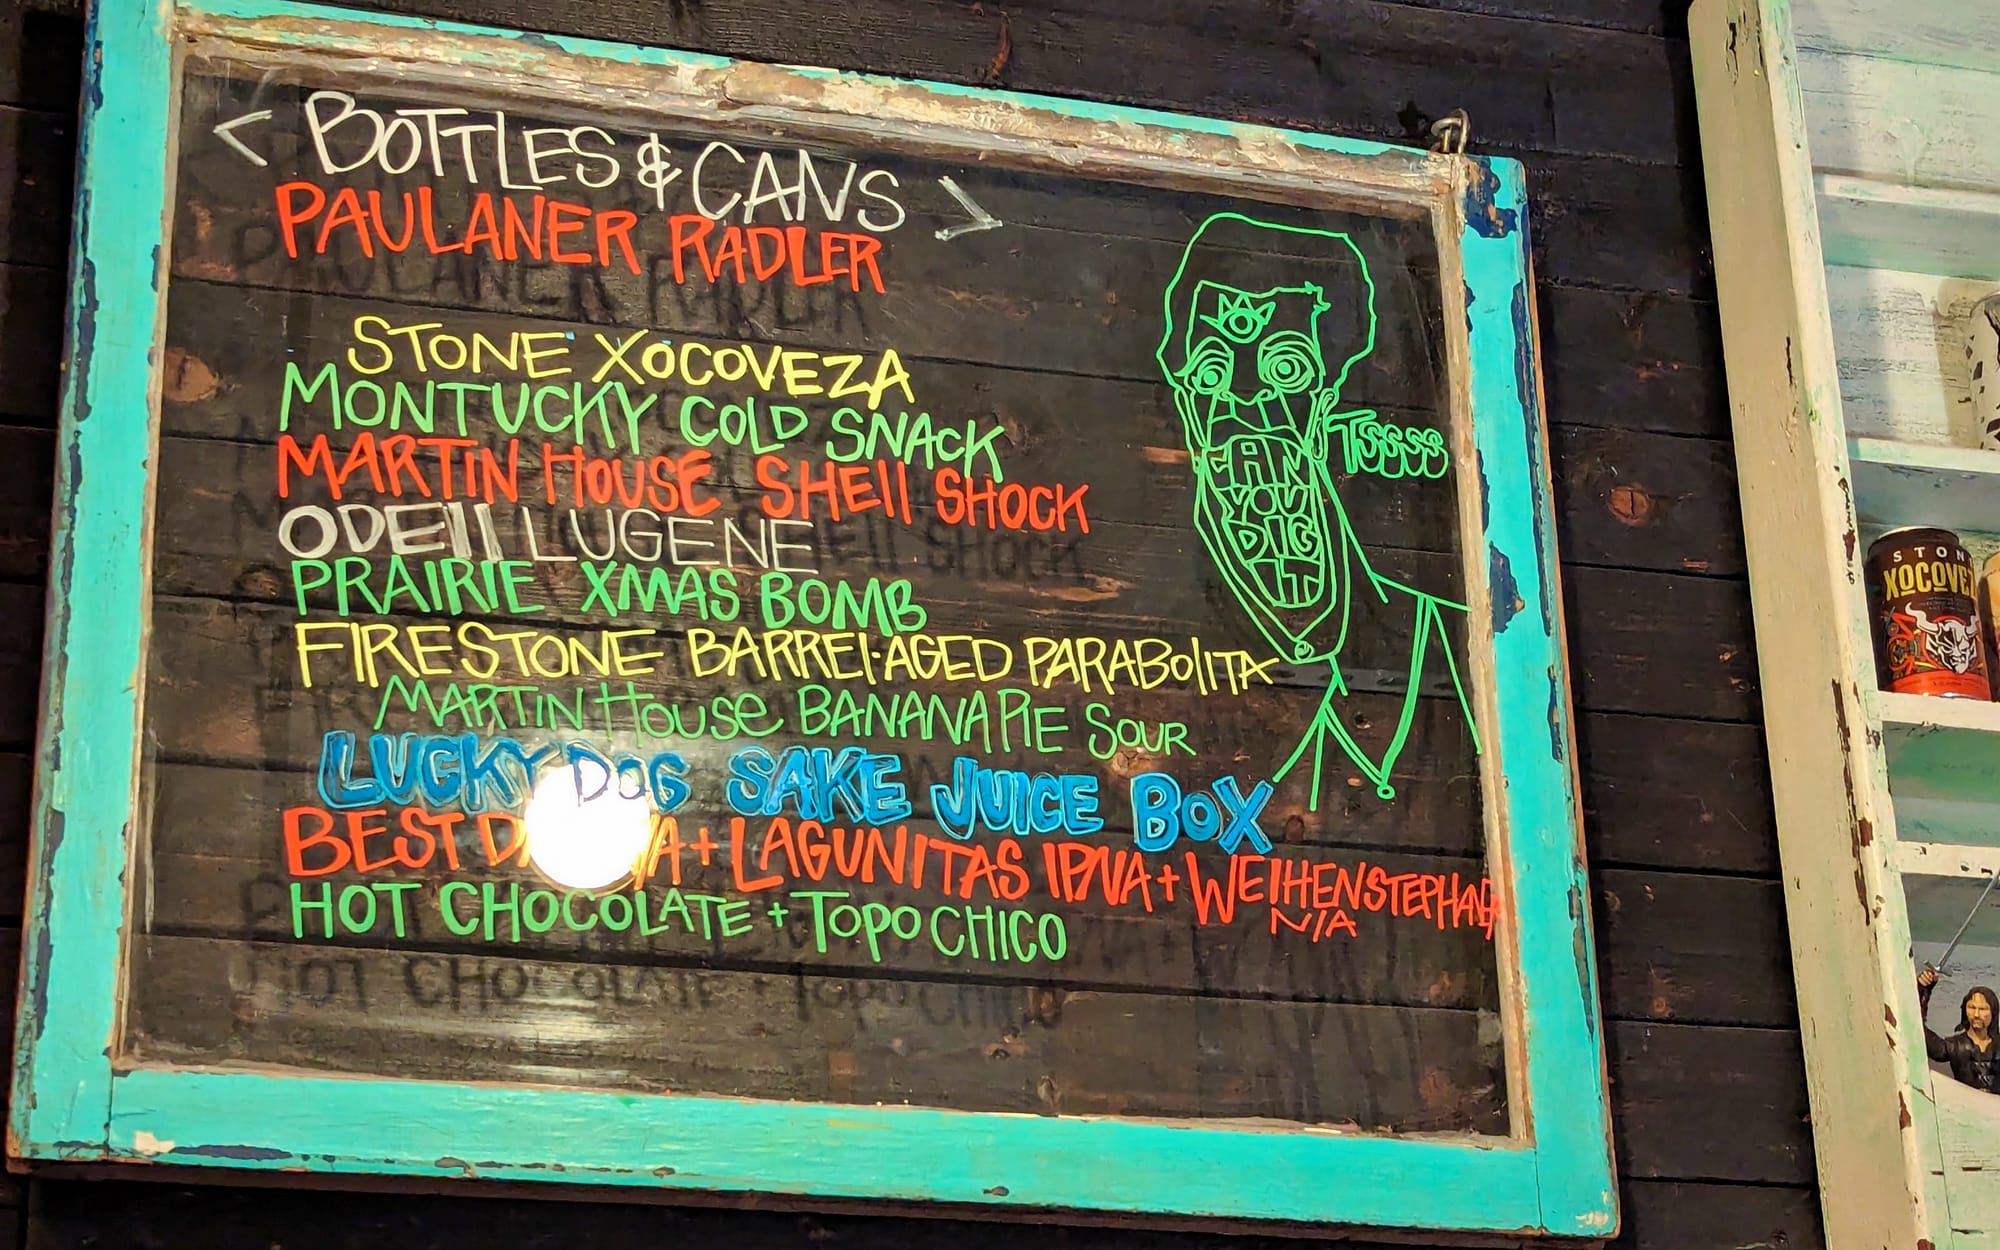 < BOTTLES & CANS >
PAULANER RADLER
STONE XOCOVEZA
MONTUCKY COLD SNACK
MARTIN HOUSE SHEll SHOCK
ODEll LUGENE
PRAIRIE XMAS BOMB
FIRESTONE BARREl-AGED PARABOlITA
MARTIN HOUSe BANANA PIE SOUR
LUCKY DOG SAKE JUICE BOX
BEST + LAGUNITAS IPNA + WEIHENSTEPHANER
N/A
HOT CHOCOLATE + TOPO CHICO
TSSSSS
CAN
YOU
DIG
IT
STON
XOCOVEZ